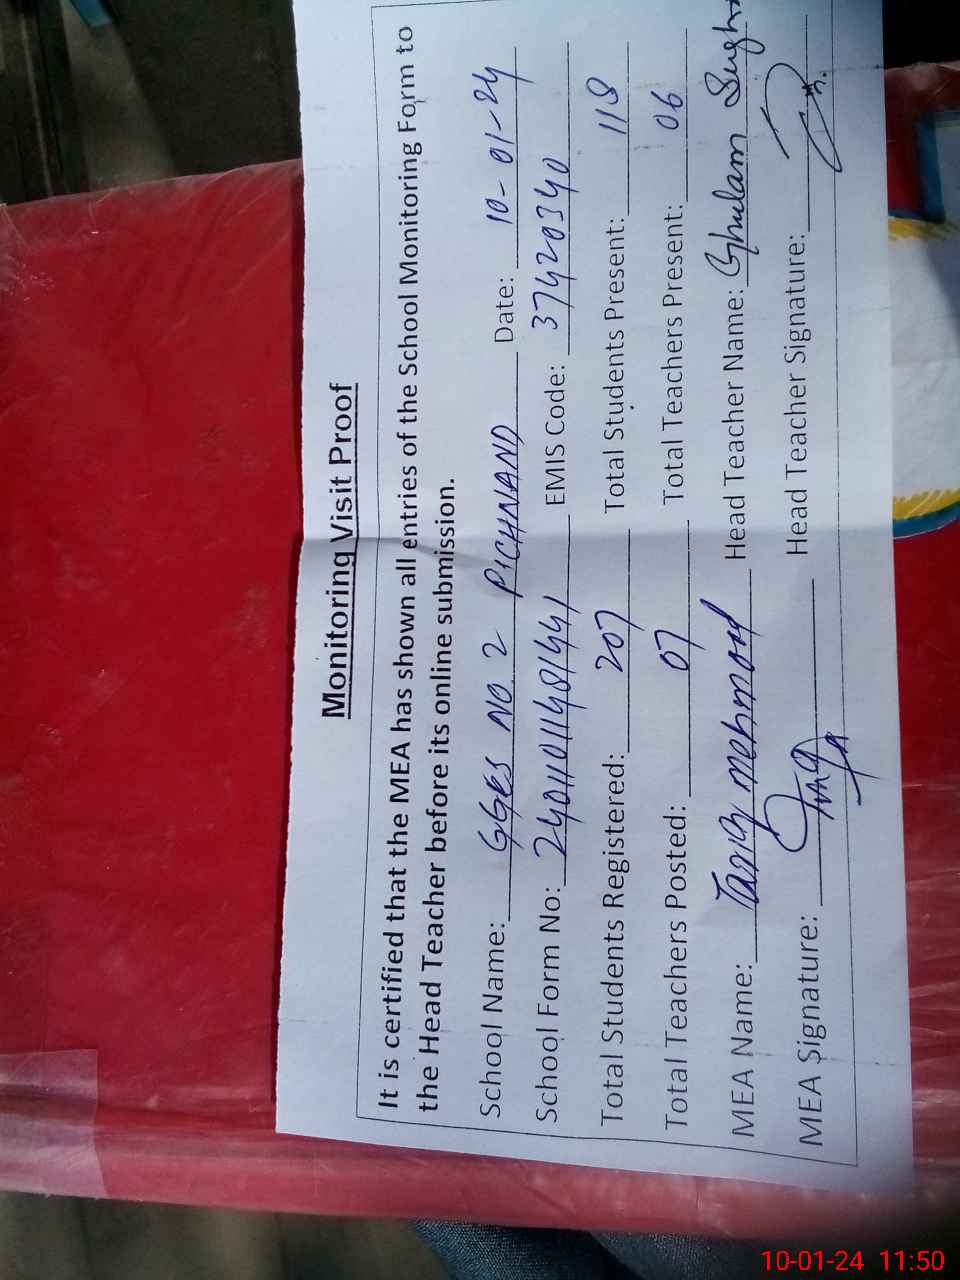 Monitoring Visit Proof
It is certified that the MEA has shown all entries of the School Monitoring Form to
the Head Teacher before its online submission.
School Name: GGES NO 2 PICHNAND Date: 10-01-24
School Form No: 2401101148/441 EMIS Code: 37420340
Total Students Registered: 207 Total Students Present: 118
Total Teachers Posted: 07 Total Teachers Present: 06
MEA Name: Tariq mehmood Head Teacher Name: Ghulam Sughra
MEA Signature: Head Teacher Signature:
10-01-24 11:50